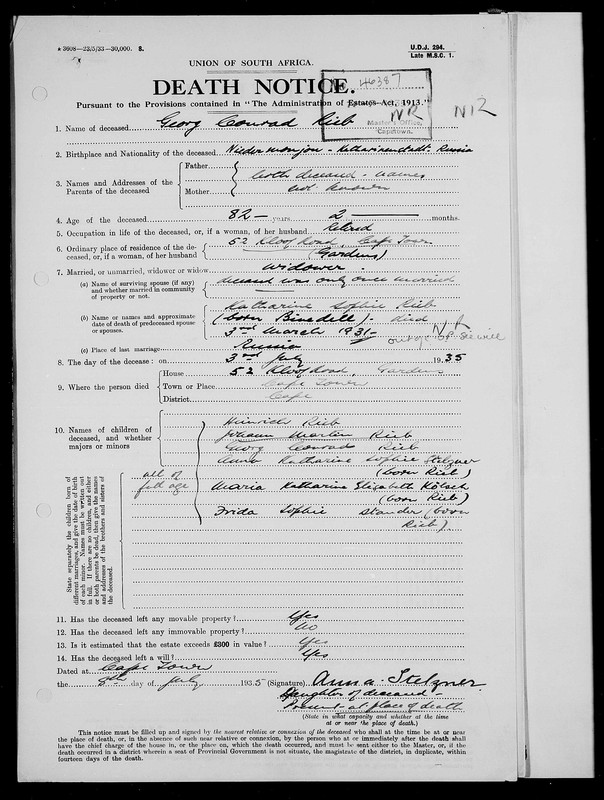 * 3608—23/5/33—30,000. S.
U.D.J. 294.
Late M.S.C. 1.
UNION OF SOUTH AFRICA.
DEATH NOTICE.
No. 46387
Pursuant to the Provisions contained in "The Administration of Estates Act, 1913."
NR
Master's Office,
Capetown.
NR
1. Name of deceased Georg Conrad Rieb
2. Birthplace and Nationality of the deceased Katharinenstadt. Russia
3. Names and Addresses of the Parents of the deceased
Father
Mother
both deceased - names
not known
4. Age of the deceased 82 — years 2 — months.
5. Occupation in life of the deceased, or, if a woman, of her husband Retired
6. Ordinary place of residence of the deceased, or, if a woman, of her husband
52 Kloof Road, Cape Town
(Gardens)
7. Married, or unmarried, widower or widow widower
(a) Name of surviving spouse (if any) and whether married in community of property or not.
deceased was only once married
(b) Name and approximate date of death of predeceased spouse or spouses.
Katharine Sophie Rieb
(born Binedell). died
3rd March 1931
NR
out of see will
(c) Place of last marriage Russia
8. The day of the decease: on 3rd July 1935
9. Where the person died
House 52 Kloof Road, Gardens
Town or Place Cape Town
District Cape
10. Names of children of deceased, and whether majors or minors
State separately the children born of different marriages, and give the date of birth of each minor. Names must be written out in full. If there are no children, and either or both parents be dead, then give the names and addresses of the brothers and sisters of the deceased.
all of
full age
Heinrich Rieb
Johann Martin Rieb
Georg Conrad Rieb
Anna Katharine Sophie Stelzner
(born Rieb)
Maria Katharine Elizabeth Kölsch
(born Rieb)
Frida Sophie Stander (born
Rieb)
11. Has the deceased left any movable property? Yes
12. Has the deceased left any immovable property? No
13. Is it estimated that the estate exceeds £300 in value? Yes
14. Has the deceased left a will? Yes
Dated at Cape Town
the 8th day of July 1935 (Signature) Anna Stelzner
Daughter of deceased -
Present at place of death
(State in what capacity and whether at the time at or near the place of death.)
This notice must be filled up and signed by the nearest relative or connexion of the deceased who shall at the time be at or near
the place of death, or, in the absence of such near relative or connexion, by the person who at or immediately after the death shall
have the chief charge of the house in, or the place on, which the death occurred, and must be sent either to the Master, or, if the
death occurred in a district wherein a seat of Provincial Government is not situate, the magistrate of the district, in duplicate, within
fourteen days of the death.